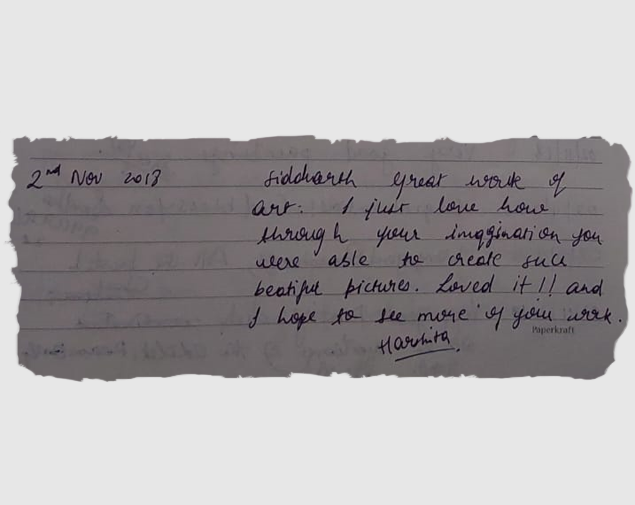 2nd Nov 2018 Siddharth Great work of
art. I just love how
through your imagination you
were able to create such
beatiful pictures. Loved it!! and
I hope to see more of your work.
Paperkraft
Harshita